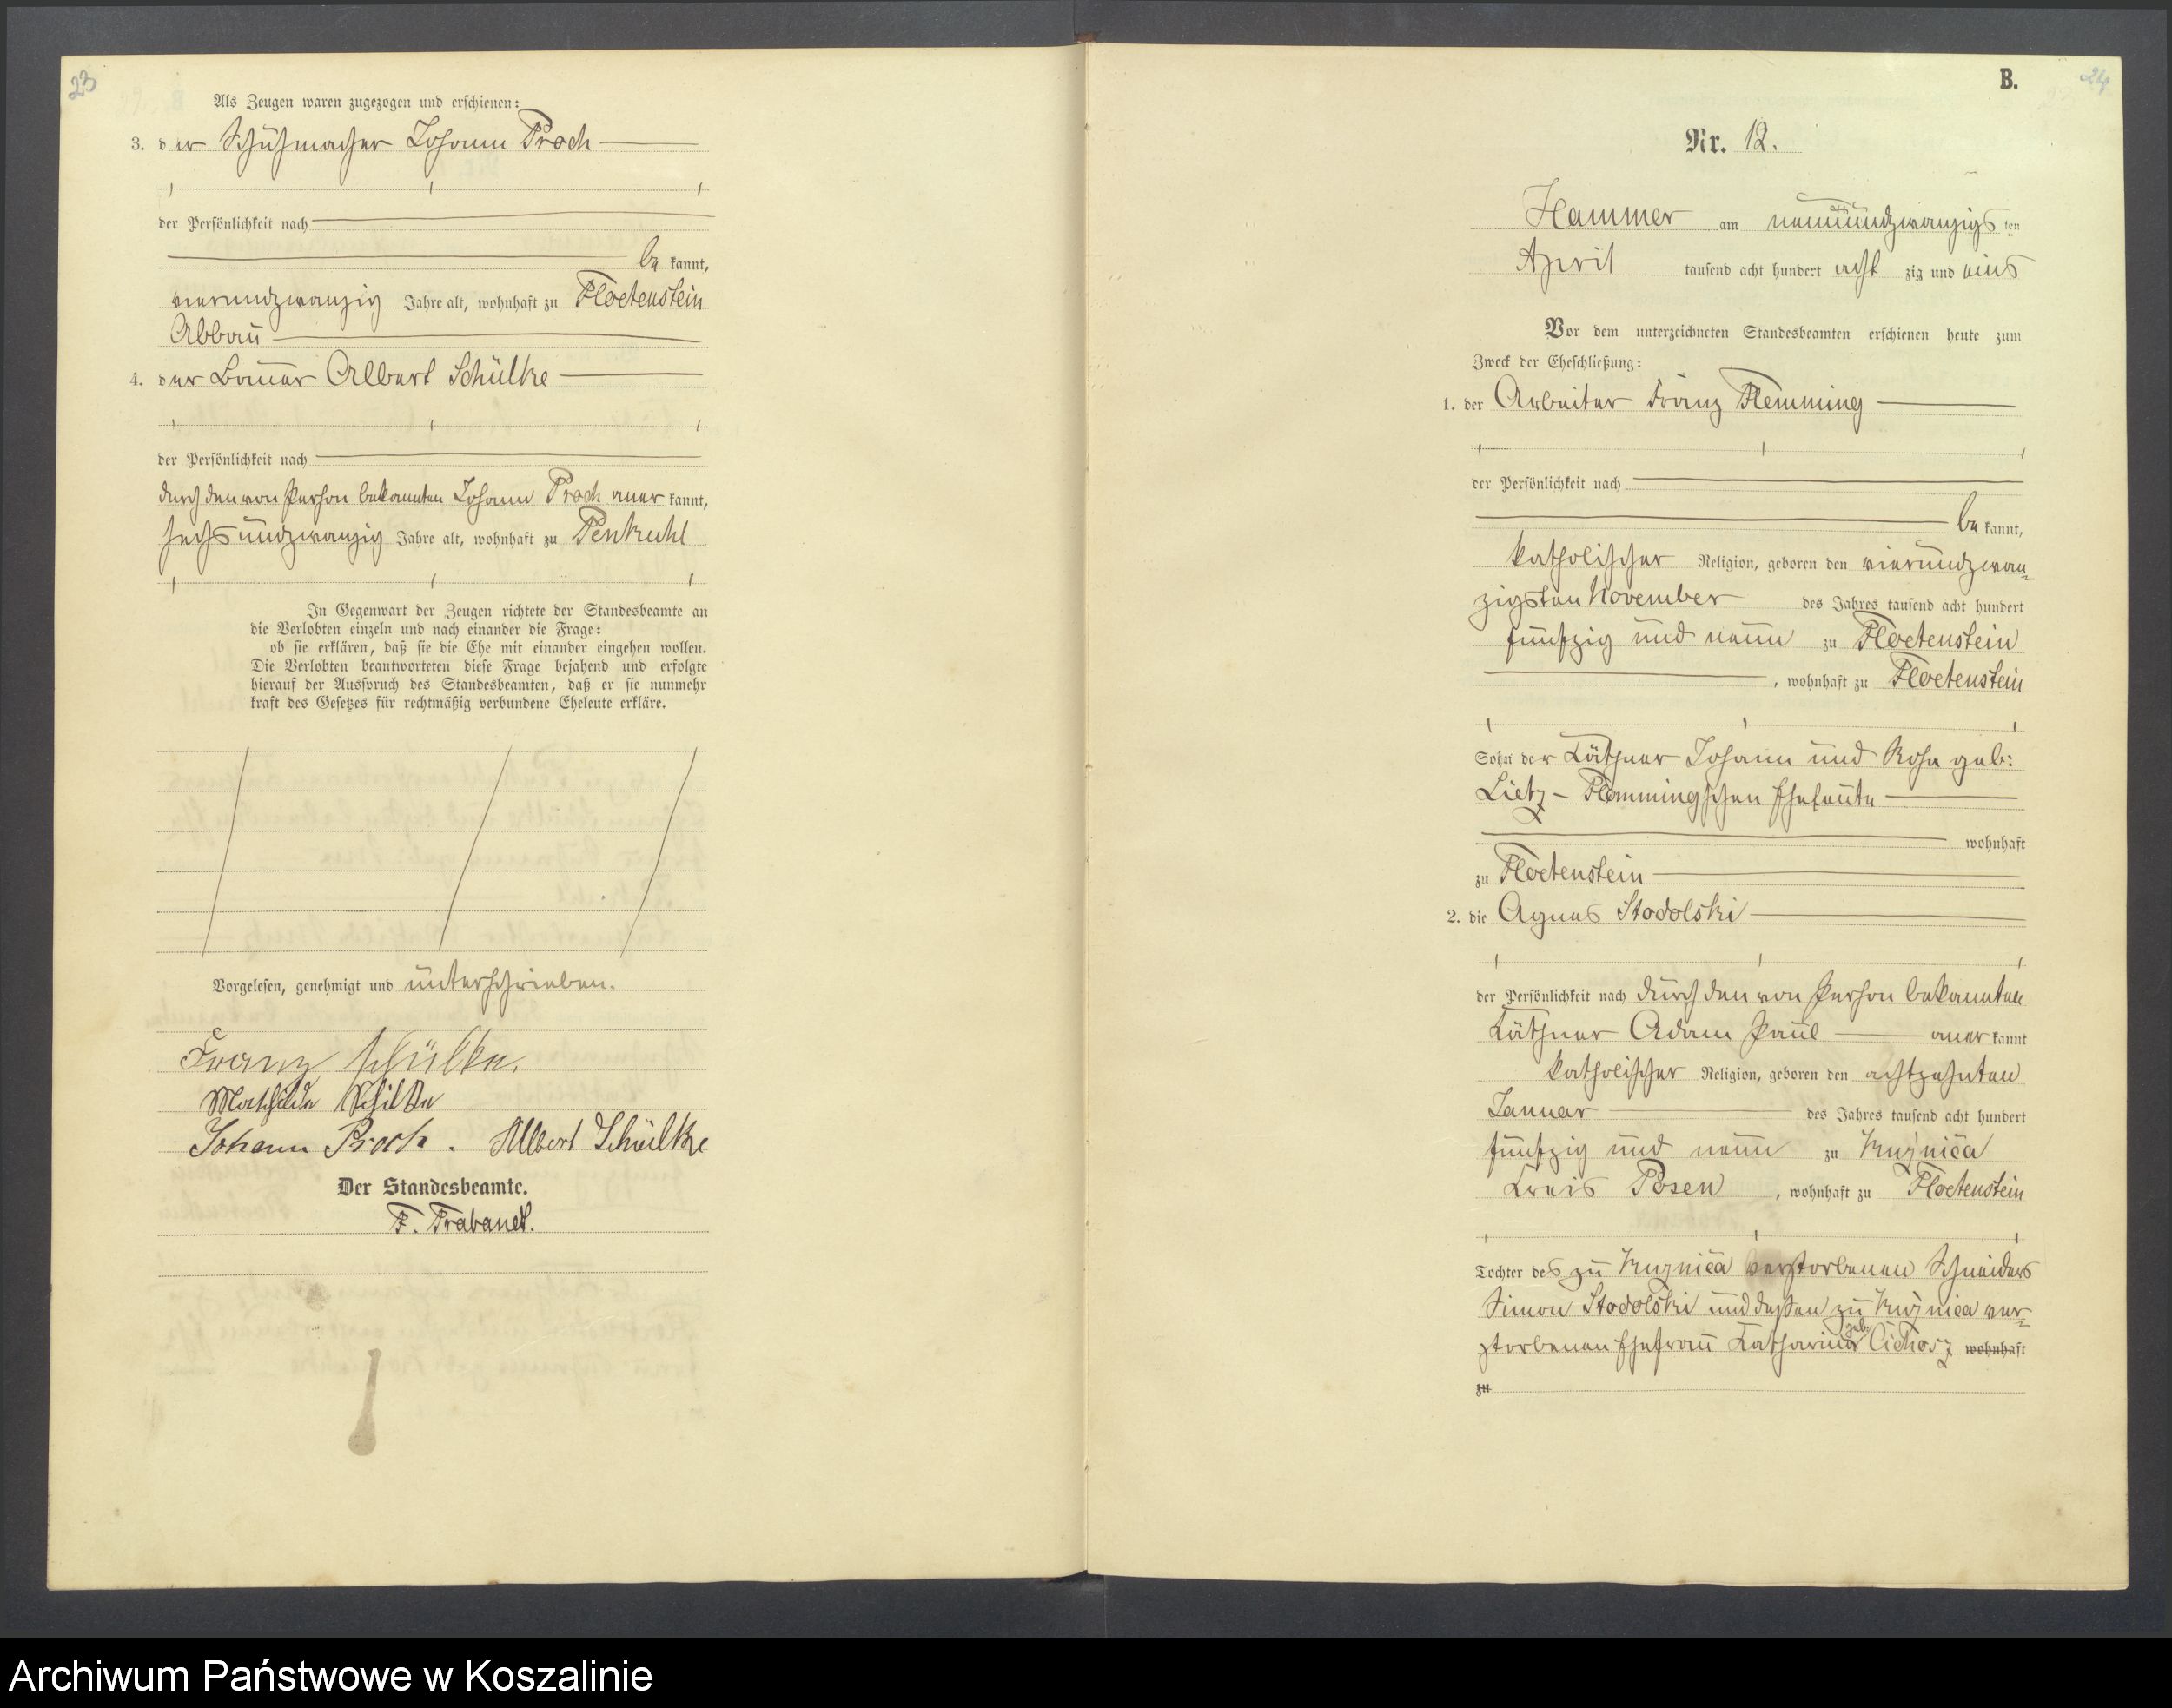 23
Als Zeugen waren zugezogen und erschienen:
3. der Schuhmacher Johann Proch
der Persönlichkeit nach
be kannt,
vierundzwanzig Jahre alt, wohnhaft zu Floetenstein
Abbau
4. der Bauer Albert Schülke
der Persönlichkeit nach
durch den von Person bekannten Johann Proch aner kannt,
sechsundzwanzig Jahre alt, wohnhaft zu Penkuhl
In Gegenwart der Zeugen richtete der Standesbeamte an
die Verlobten einzeln und nach einander die Frage:
ob sie erklären, daß sie die Ehe mit einander eingehen wollen.
Die Verlobten beantworteten diese Frage bejahend und erfolgte
hierauf der Ausspruch des Standesbeamten, daß er sie nunmehr
kraft des Gesetzes für rechtmäßig verbundene Eheleute erkläre.
Vorgelesen, genehmigt und unterschrieben.
Franz Schülke.
Mathilde Schilke
Johann Proch. Albert Schülke
Der Standesbeamte.
F. Trabandt.
B. 24
Nr. 12.
Hammer am neunundzwanzigs ten
April tausend acht hundert acht zig und eins
Vor dem unterzeichneten Standesbeamten erschienen heute zum
Zweck der Eheschließung:
1. der Arbeiter Franz Flemming
der Persönlichkeit nach
be kannt,
katholischer Religion, geboren den vierundzwan-
zigsten November des Jahres tausend acht hundert
fünfzig und neun zu Floetenstein
, wohnhaft zu Floetenstein
Sohn der Käthner Johann und Rosa geb:
Lietz - Flemmingschen Eheleute
wohnhaft
zu Floetenstein
2. die Agnes Stodolski
der Persönlichkeit nach durch den von Person bekannten
Käthner Adam Paul aner kannt
katholischer Religion, geboren den achtzehnten
Januar des Jahres tausend acht hundert
fünfzig und neun zu Kuznica
Kreis Posen, wohnhaft zu Floetenstein
Tochter des zu Kuznica verstorbenen Schneiders
Simon Stodolski und dessen zu Kuznica ver-
storbenen Ehefrau Katharina geb: Cichosz wohnhaft
zu
Archiwum Państwowe w Koszalinie